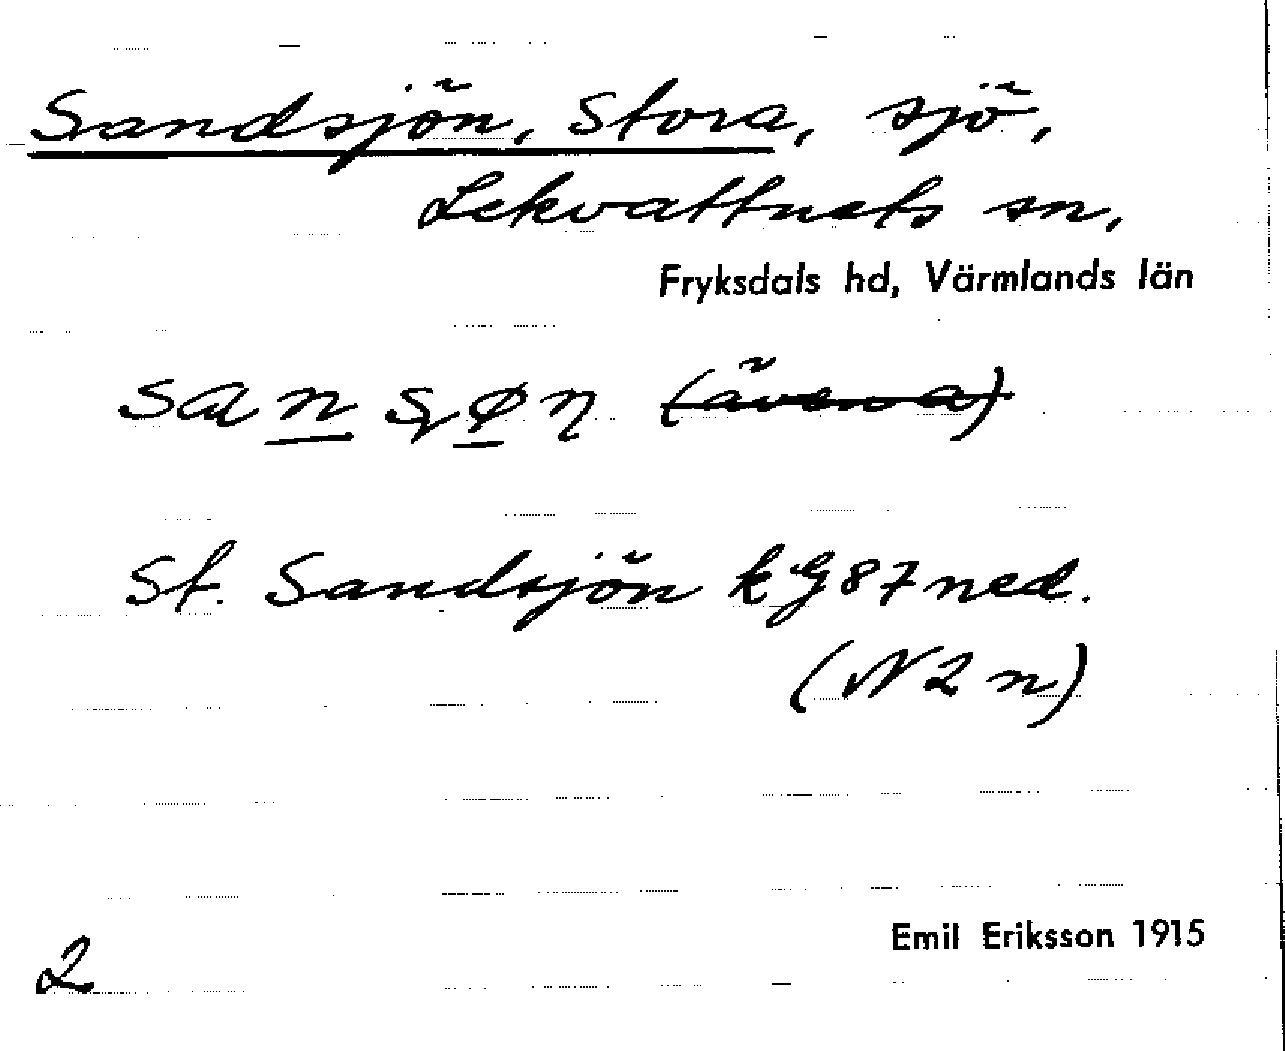 Sandsjön, Stora, sjö,
Lekvattnets sn,
Fryksdals hd, Värmlands län
St. Sandsjön kG87ned.
(N2n)
Emil Eriksson 1915
2